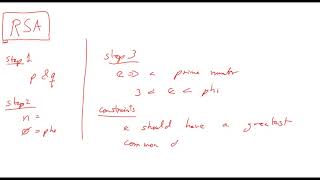 RSA
step 1
p & q
step 2
n =
Ø = phi
step 3
e => a prime number
3 < e < phi
constraints
e should have a greatest
common d